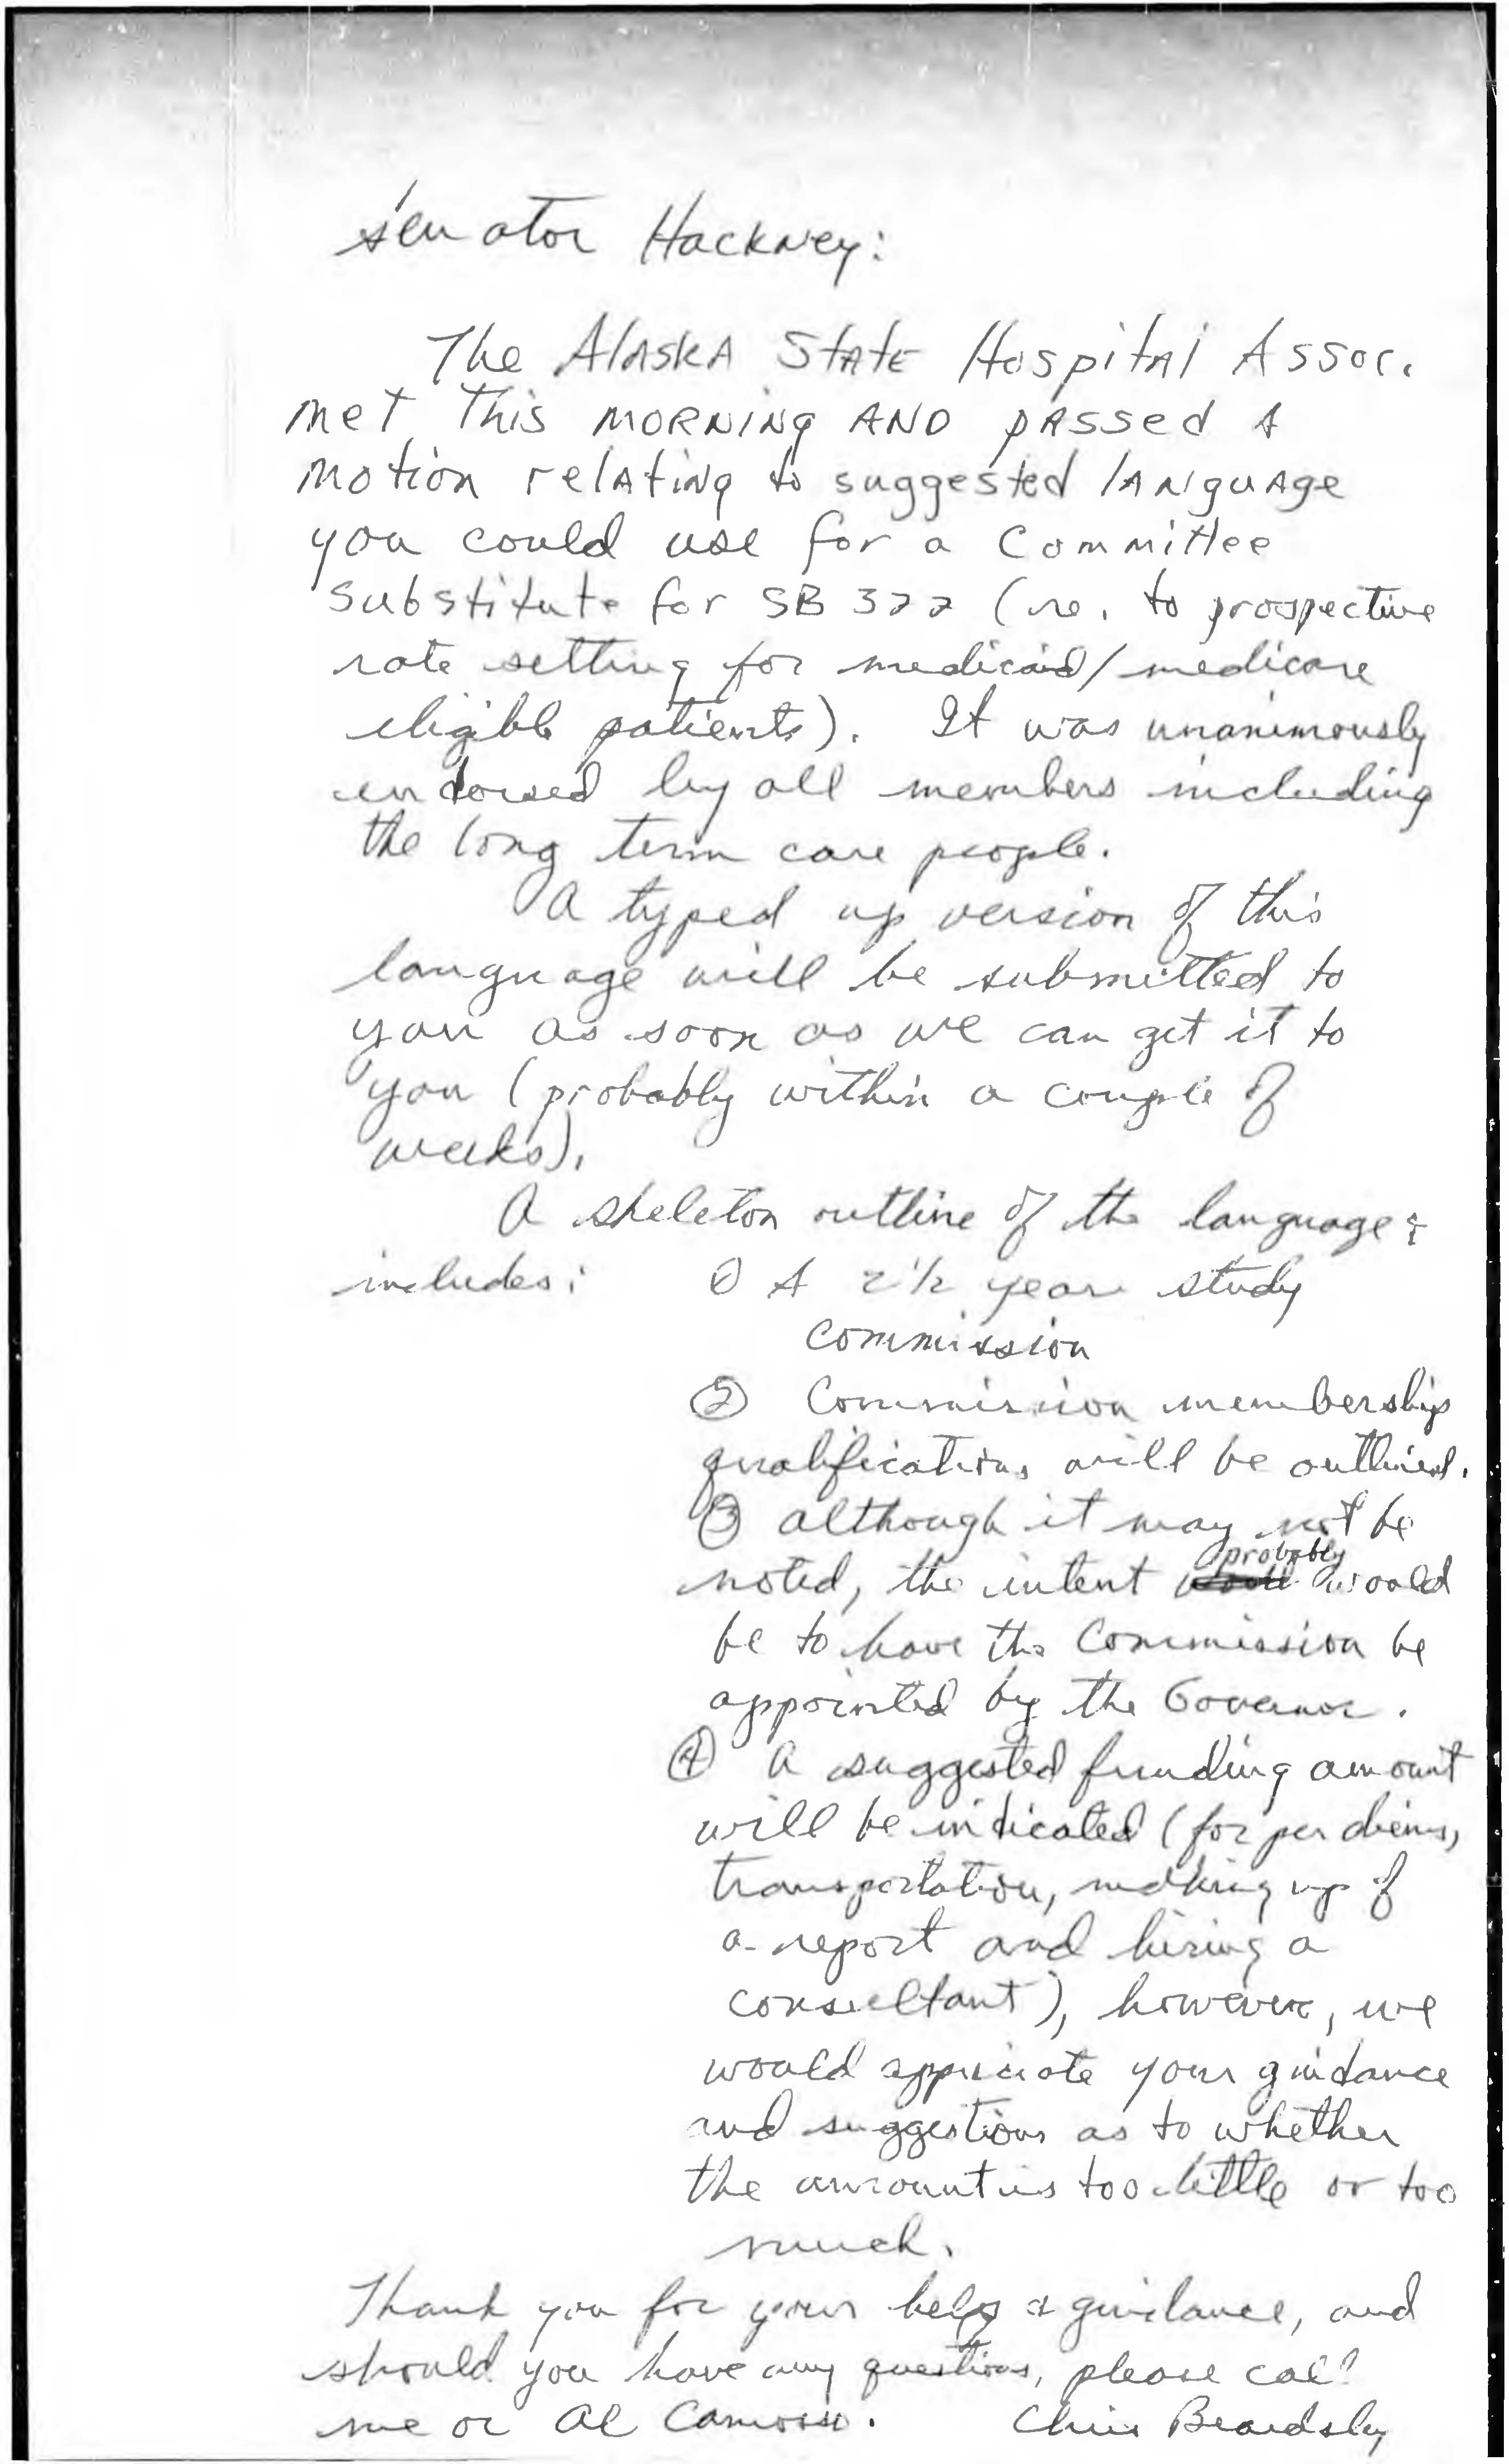 Senator Hackney:
The Alaska State Hospital Assoc.
met this morning and passed a
motion relating to suggested language
you could use for a Committee
Substitute for SB 322 (re. to prospective
rate setting for medicaid/medicare
eligible patients). It was unanimously
endorsed by all members including
the long term care people.
A typed up version of this
language will be submitted to
you as soon as we can get it to
you (probably within a couple of
weeks).
A skeleton outline of the language
includes: ① A 2 1/2 year study
commission
② Commission membership
qualifications will be outlined.
③ although it may not be
probably
noted, the intent would
be to have the Commission be
appointed by the Governor.
④ A suggested funding amount
will be indicated (for per diems,
transportation, making up of
a report and hiring a
consultant), however, we
would appriciate your guidance
and suggestions as to whether
the amount is too little or too
much.
Thank you for your help & guidance, and
should you have any questions, please call
me or Al Camosso. Chris Beardsley